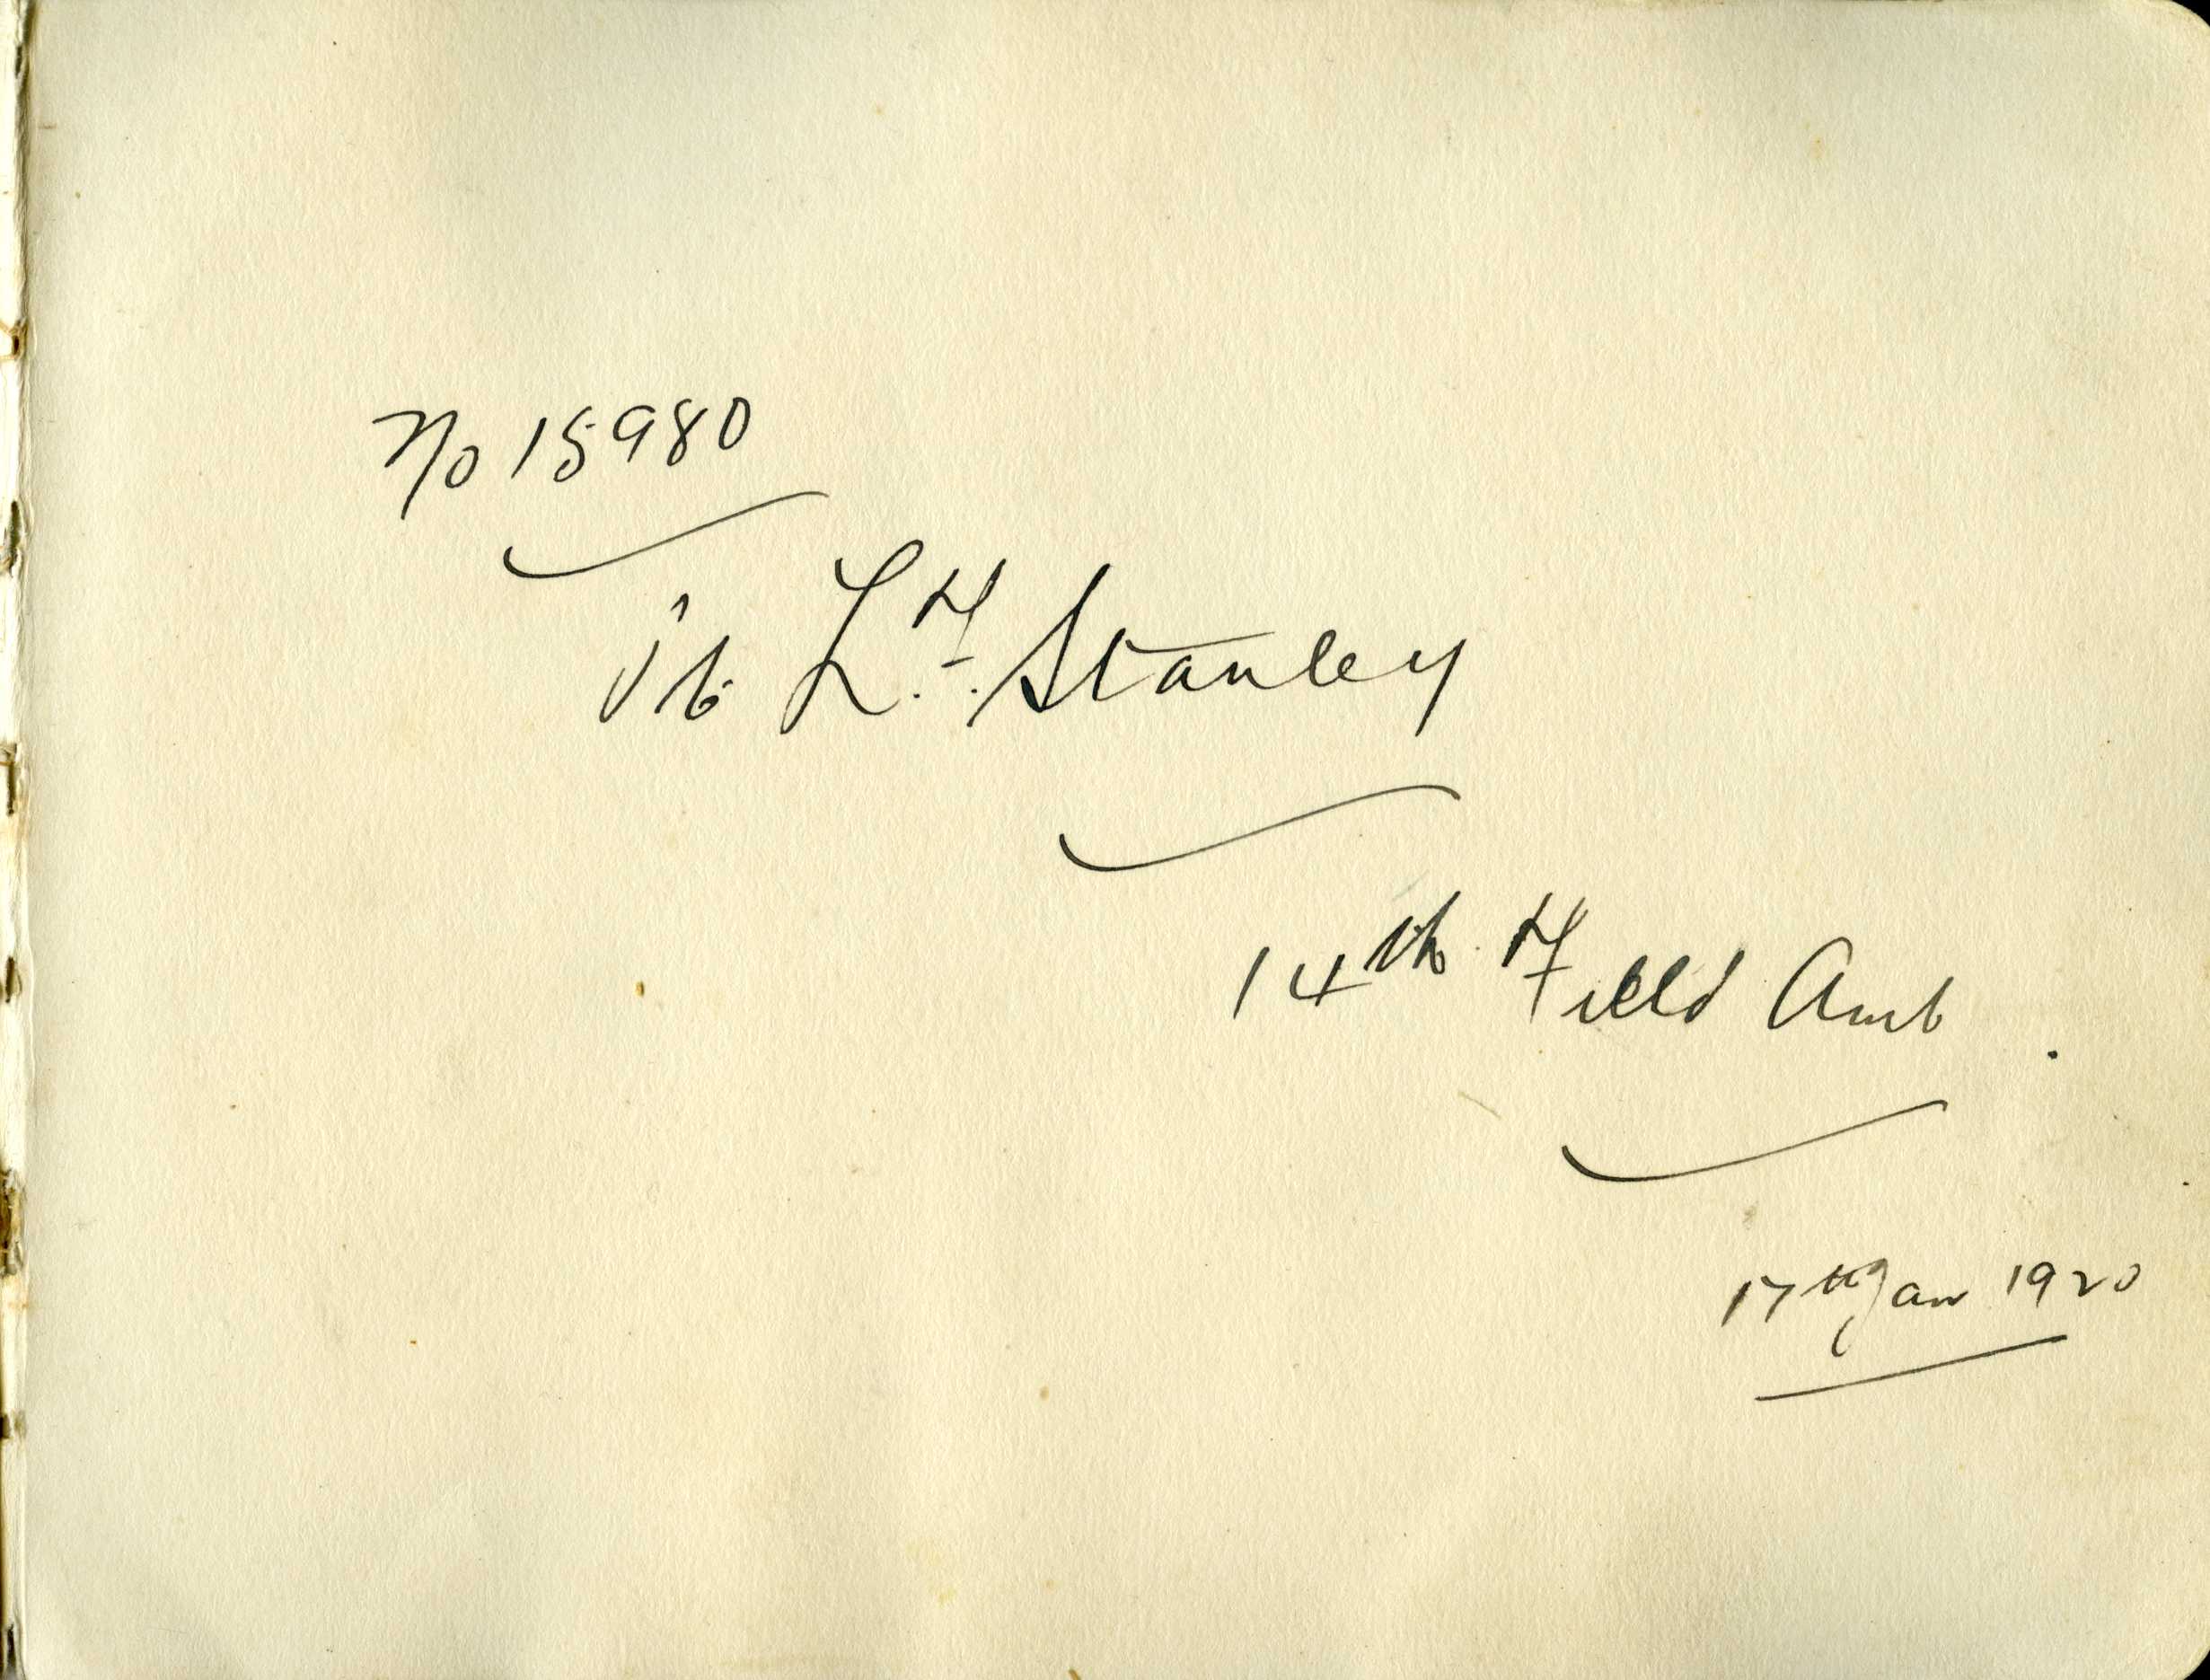 No 15980
L. F. Stanley
14th Field Amb
17th Jan 1920